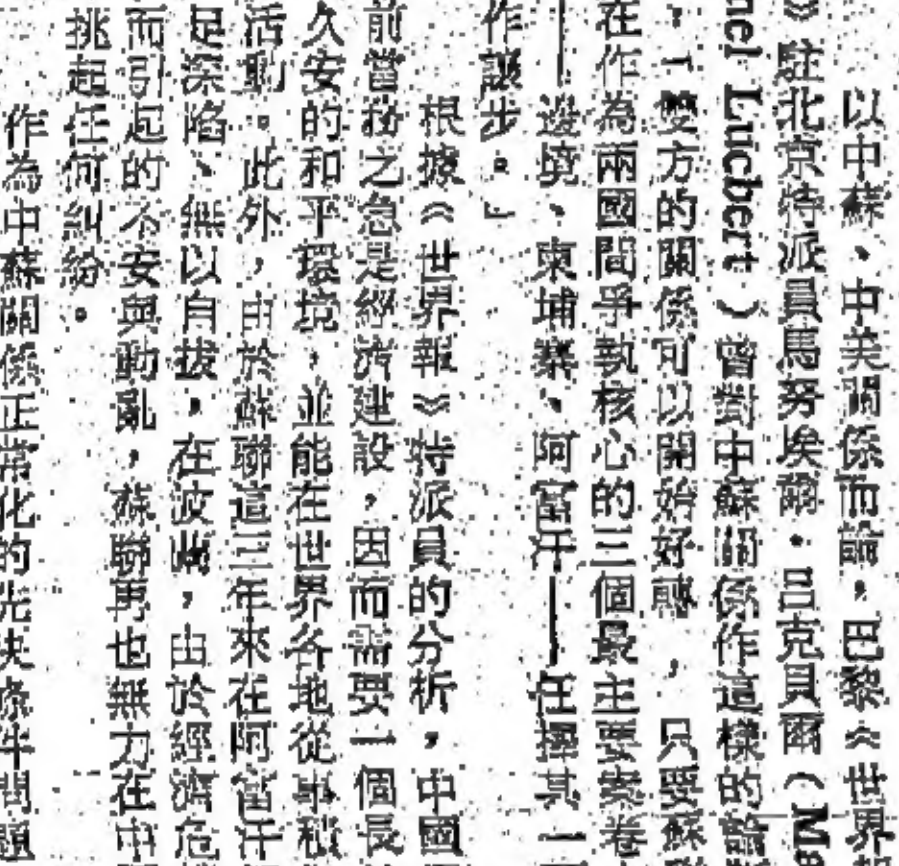 以中蘇、中美關係而論，巴黎《世界
》駐北京特派員馬努埃爾·呂克貝爾（Ma
nel Lucbert）曾對中蘇關係作這樣的論
，「雙方的關係可以開始好轉，只要蘇
在作為兩國間爭執核心的三個最主要案卷
——邊境、柬埔寨、阿富汗——任擇其一
作讓步。」
根據《世界報》特派員的分析，中國
前當務之急是經濟建設，因而需要一個長
久安的和平環境，並能在世界各地從事積
活動。此外，由於蘇聯這三年來在阿富汗
足深陷、無以自拔，在波蘭，由於經濟危
而引起的不安與動亂，蘇聯再也無力在中
挑起任何糾紛。
作為中蘇關係正常化的先決條件問題